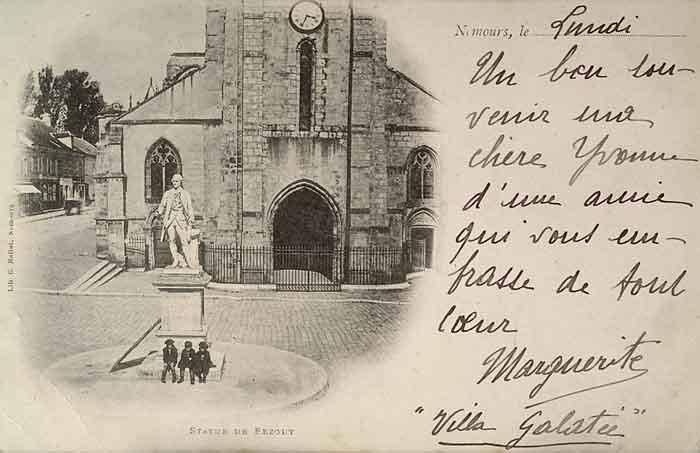 Nemours, le Lundi
Un bon sou-
venir ma
chère Yvonne
d'une amie
qui vous em-
brasse de tout
cœur
Marguerite
"Villa Galatée"
Lib. E. Ratlet, Nemours
STATUE DE BEZOUT